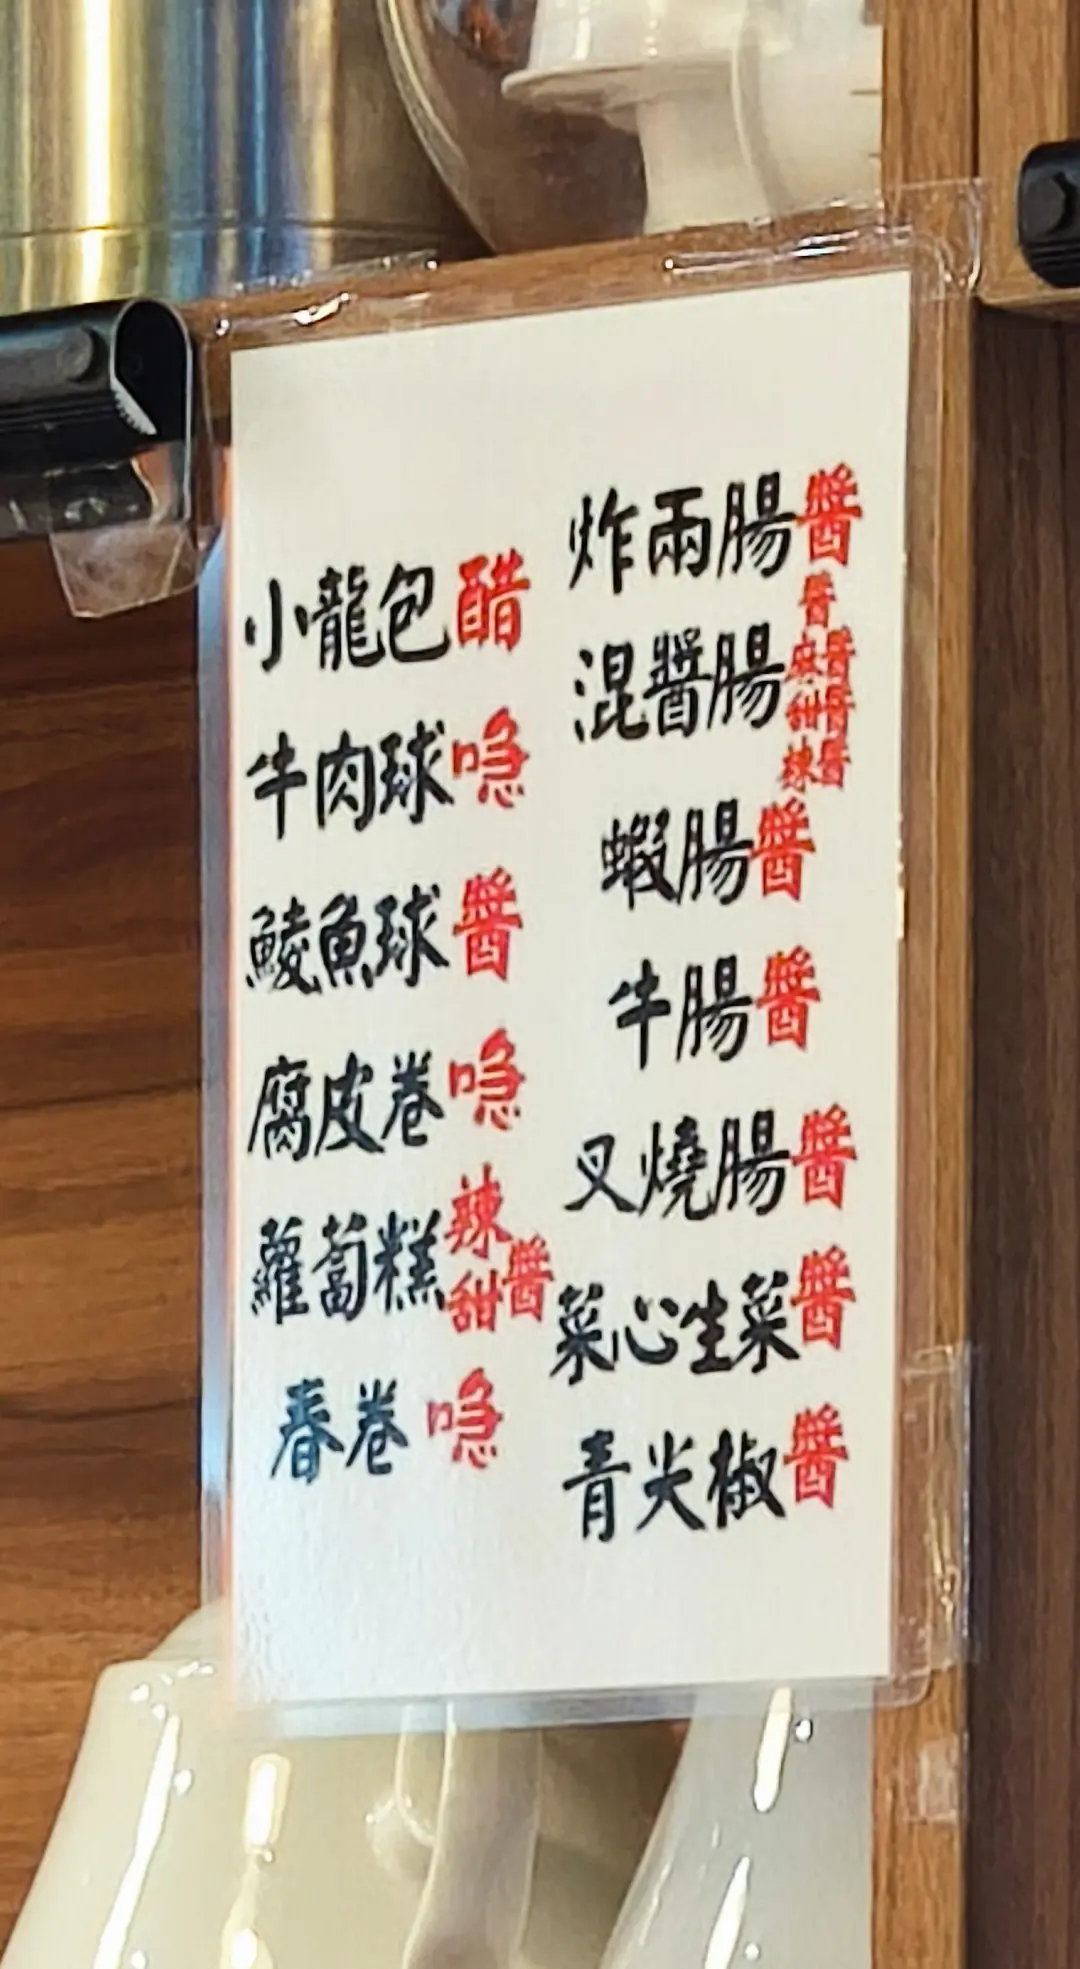 小龍包醋
牛肉球喼
鯪魚球醬
腐皮卷喼
蘿蔔糕辣甜醬
春卷喼
炸兩腸醬
混醬腸醬麻醬甜醬辣醬
蝦腸醬
牛腸醬
叉燒腸醬
菜心生菜醬
青尖椒醬